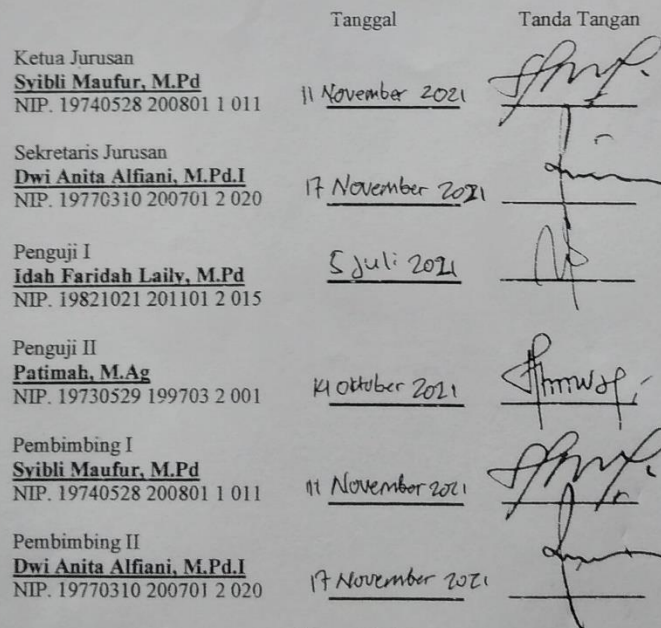 Tanggal Tanda Tangan
Ketua Jurusan
Syibli Maufur, M.Pd
NIP. 19740528 200801 1 011
11 November 2021
Sekretaris Jurusan
Dwi Anita Alfiani, M.Pd.I
NIP. 19770310 200701 2 020
17 November 2021
Penguji I
Idah Faridah Laily, M.Pd
NIP. 19821021 201101 2 015
5 Juli 2021
Penguji II
Patimah, M.Ag
NIP. 19730529 199703 2 001
14 Oktober 2021
Pembimbing I
Syibli Maufur, M.Pd
NIP. 19740528 200801 1 011
11 November 2021
Pembimbing II
Dwi Anita Alfiani, M.Pd.I
NIP. 19770310 200701 2 020
17 November 2021